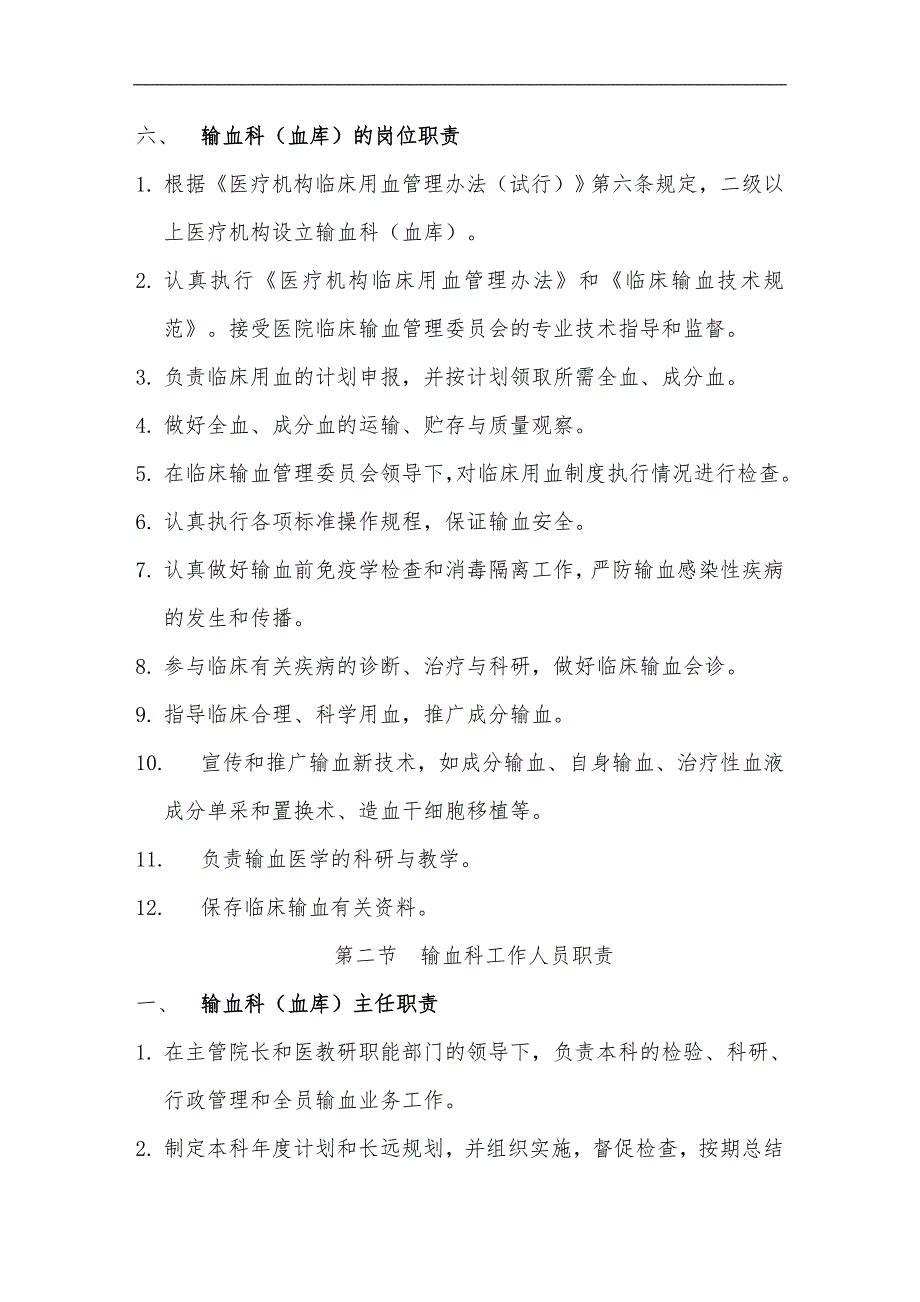 六、 输血科（血库）的岗位职责
1. 根据《医疗机构临床用血管理办法（试行）》第六条规定，二级以
上医疗机构设立输血科（血库）。
2. 认真执行《医疗机构临床用血管理办法》和《临床输血技术规
范》。接受医院临床输血管理委员会的专业技术指导和监督。
3. 负责临床用血的计划申报，并按计划领取所需全血、成分血。
4. 做好全血、成分血的运输、贮存与质量观察。
5. 在临床输血管理委员会领导下，对临床用血制度执行情况进行检查。
6. 认真执行各项标准操作规程，保证输血安全。
7. 认真做好输血前免疫学检查和消毒隔离工作，严防输血感染性疾病
的发生和传播。
8. 参与临床有关疾病的诊断、治疗与科研，做好临床输血会诊。
9. 指导临床合理、科学用血，推广成分输血。
10. 宣传和推广输血新技术，如成分输血、自身输血、治疗性血液
成分单采和置换术、造血干细胞移植等。
11. 负责输血医学的科研与教学。
12. 保存临床输血有关资料。
第二节 输血科工作人员职责
一、 输血科（血库）主任职责
1. 在主管院长和医教研职能部门的领导下，负责本科的检验、科研、
行政管理和全员输血业务工作。
2. 制定本科年度计划和长远规划，并组织实施，督促检查，按期总结